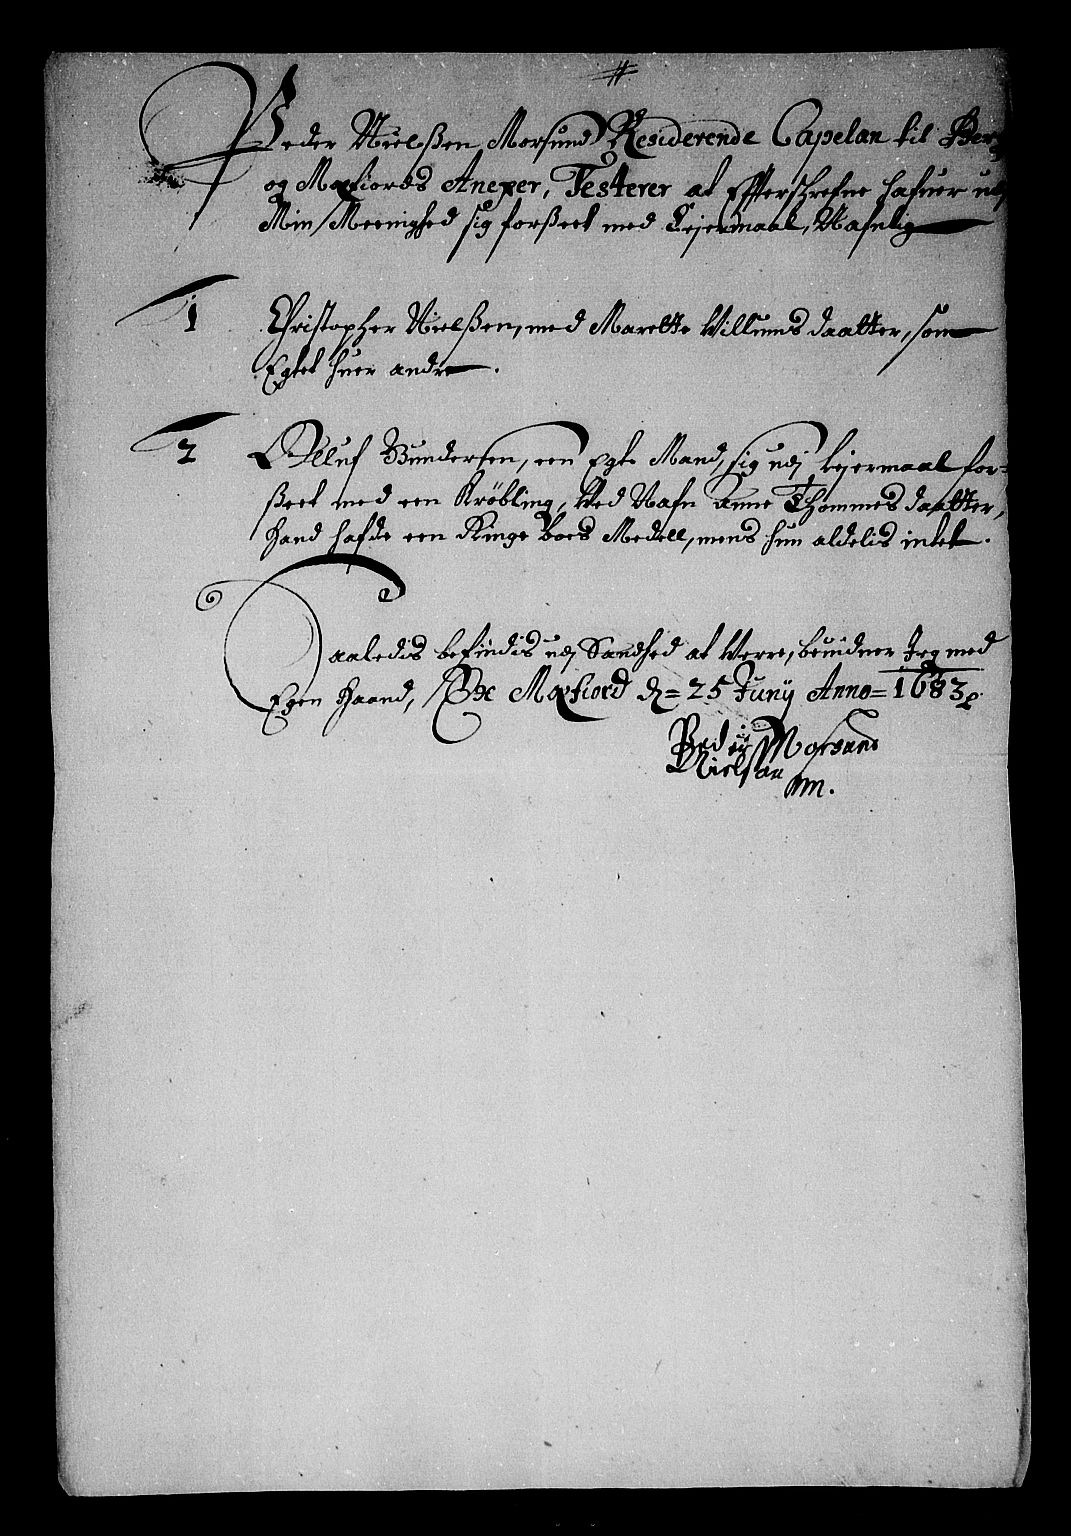 #
Peder Nielßen Morsund Residerende Capelan til Berg
og Maxfiords Anexer, Testerer at Effterschrefne hafuer udj
Min Meenighed sig forßeet med Leiermaal, Nafnlig
1 Christopher Nielßen, med Marette Villums daatter, som
Egtet huer andre.
2 Olluf Gundersen, een Egte Mand, sig udj leiermaal for-
ßeet med een Krøbling, Ved Nafn anne Thommes daatter,
hand hafde een Ringe boes Medell, mens hun aldelis intet.
Saaledis befindis udj Sandhed at Verre, beuidner Jeg med
Egen Haand, Ex Maxfiord d= 25 Junij Anno= 1683
Peder Morsund
Nielsøn
mm.